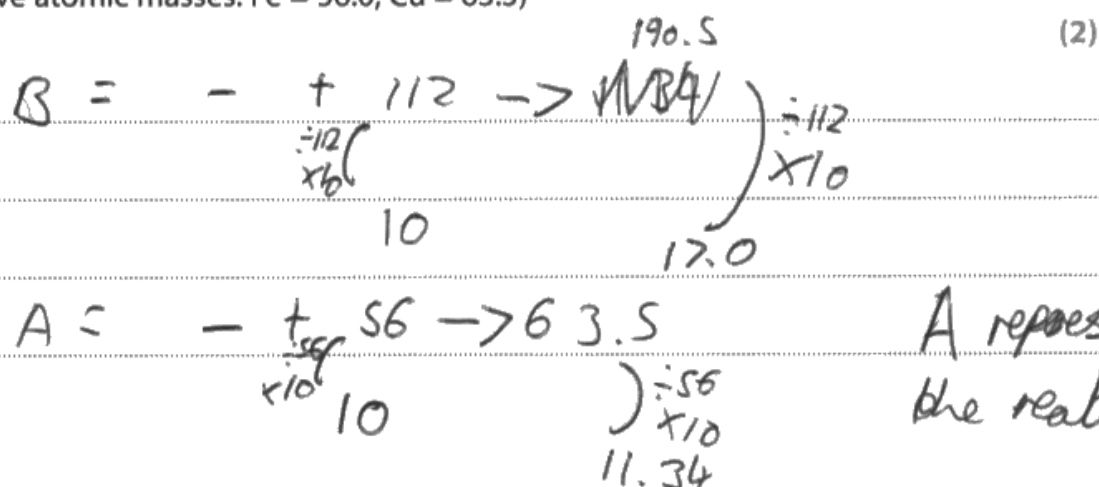 ve atomic masses: Fe = 56.0, Cu = 63.5)
(2)
190.5
B = - + 112 ->
÷112
x10
÷112
x10
10
17.0
A = - + 56 -> 63.5
÷56
x10
10
÷56
x10
11.34
A repres
the real